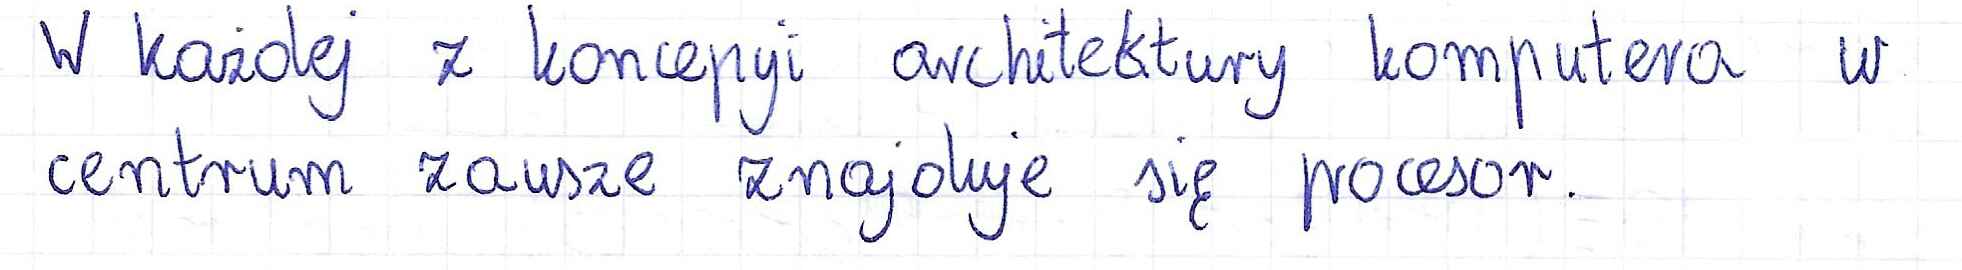 W każdej z koncepyi architektury komputera w
centrum zawsze znajduje się procesor.